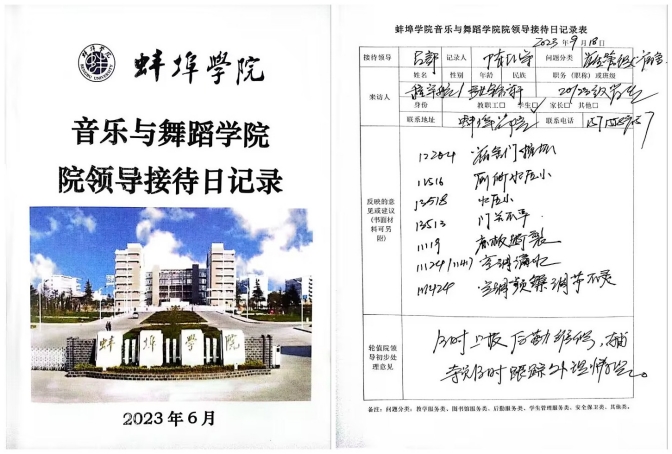 蚌埠学院
BENGBU UNIVERSITY
蚌埠学院
音乐与舞蹈学院
院领导接待日记录
蚌埠学院
2023年6月
蚌埠学院音乐与舞蹈学院院领导接待日记录表
2023年9月18日
接待领导
记录人
问题分类
姓名 性别 年龄 民族 职务（职称）或班级
来访人
2023级学生
身份 教职工口 学生口 家长口 其他口
联系地址 蚌埠学院 联系电话
反映的意
见或建议
（书面材
料可另
附）
12204 宿舍门
11516 厕所水压小
13518 水压小
13513 门关不平
11119 床板断裂
空调漏水
空调
调节不灵
轮值院领
导初步处
理意见
及时上报后勤维修，辅
导员及时跟踪处理情况。
备注：问题分类：教学服务类、图书馆服务类、后勤服务类、学生管理服务类、安全保卫类、其他类；